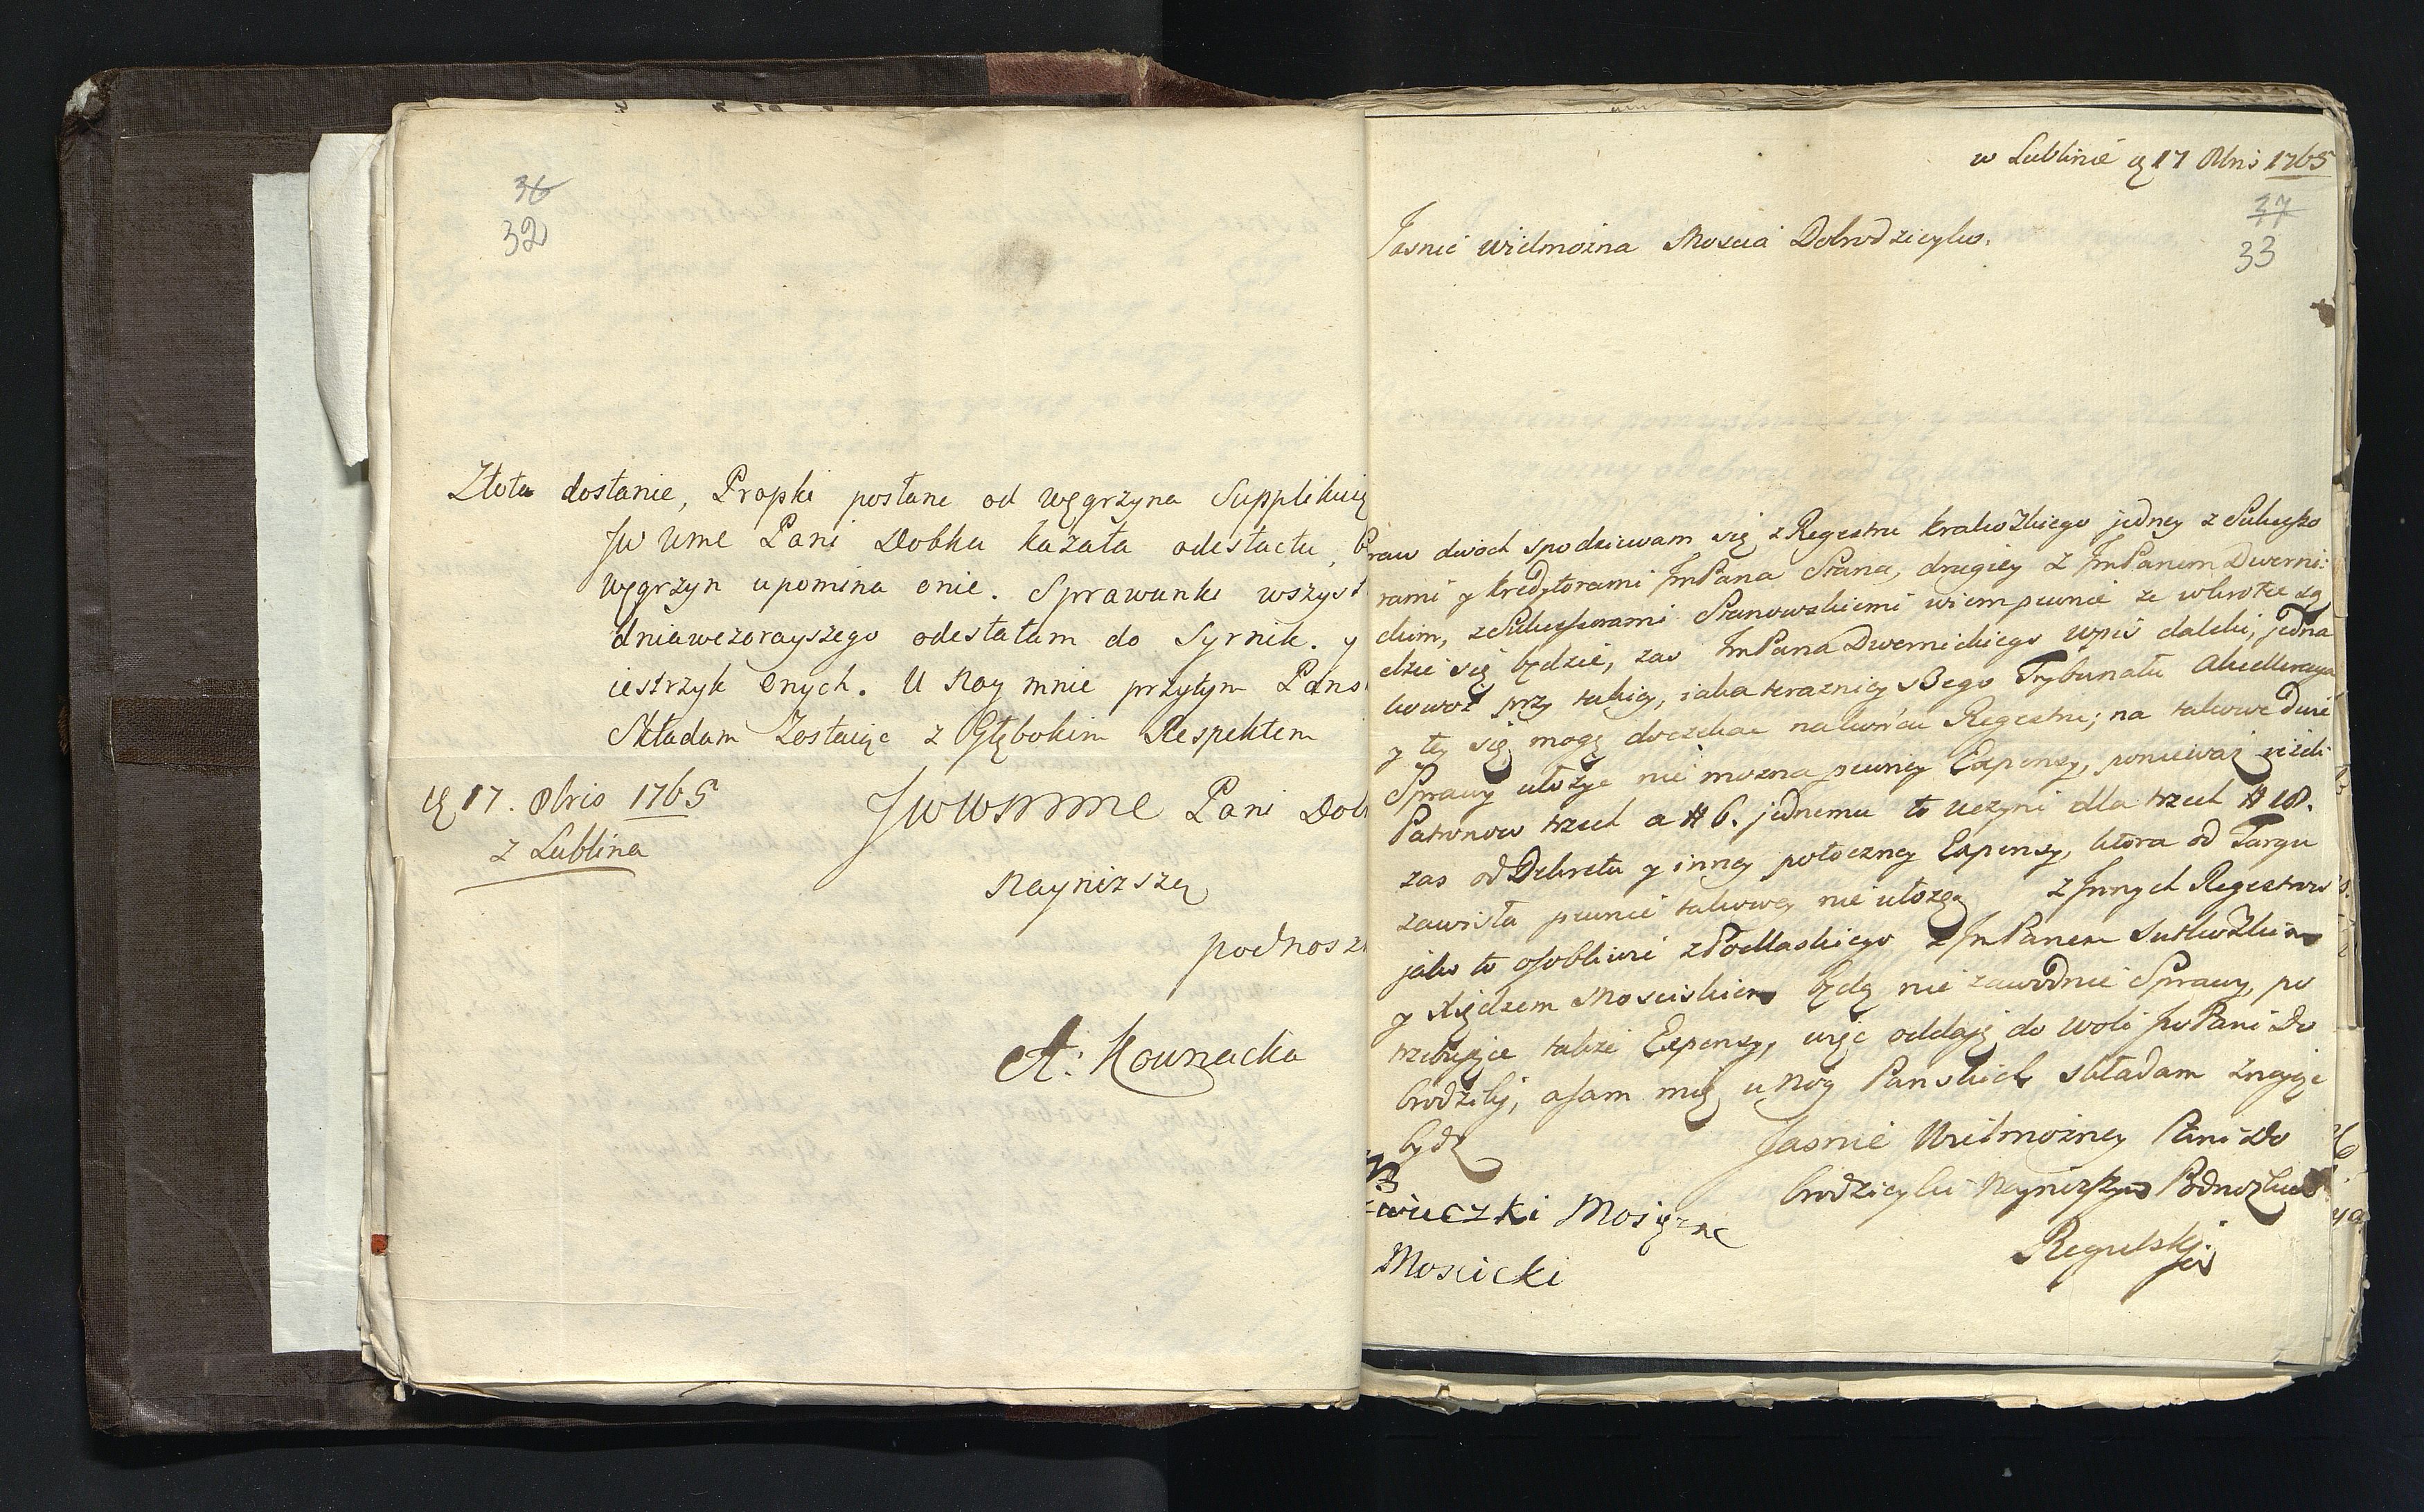 36
32
Złota dostanie, Propki posłane od węgrzyna Supplikuię
JW Ume Pani Dobka kazała odesłactu, b
węgrzyn upomina onie. Sprawunki wszyst
dniawczorayszego odesłałam do Syrnik. y
iestrzyk onych. U Nog mnie przytym Pans
Składam Zostaiąc z Głębokim Respektem
d 17. Obris 1765
z Lublina
JWWMMMe Pani Dob
Nayniższą
podnosz
A: Kownacka
w Lublinie d 17 Obris 1765
37
33
Jasnie wielmożna Moscia Dobrodzieyko.
Praw dwoch spodziewam się z Regestru krakowskiego jedney z Sukcesso
rami y kredytorami JmPana Srana, drugiey z JmPanem Dwerni:
ckim, z Sukcessorami Sranowskiemi wiem pewnie że wkrotce są
dzić się będzie, zas JmPana Dwernickiego wpis daleki, jedna
kowoż przy takiey, iaka teraznieyszego Trybunału akceleracya
y tey się mogę doczekac nakońcu Regestru; na takowe dwie
Sprawy ułożyc nie można pewney Expensy, poniewaz jeżeli
Patronow trzech a # 6. jednemu to uczyni dla trzech # 18.
zas od Dekretu y inney potoczney Expensy, ktora od Targu
zawisła pewnie takowey nie ułożę z Innych Regestrow
jako to osobliwie z Podlaskiego z JmPanem Sutkowskim
y Xiędzem Mosciskiem będą nie zawodnie Sprawy, po
trzebujące takze Expensy, więc oddaję do woli JwPani Do
brodziki, asam mię u Nog Panskich składam żnając
bydz
Jasnie Wielmożney Pani Do
brodzieyki Nayniższym Podnożkiem
Regulski
wieczki Mosiężne
Moscicki